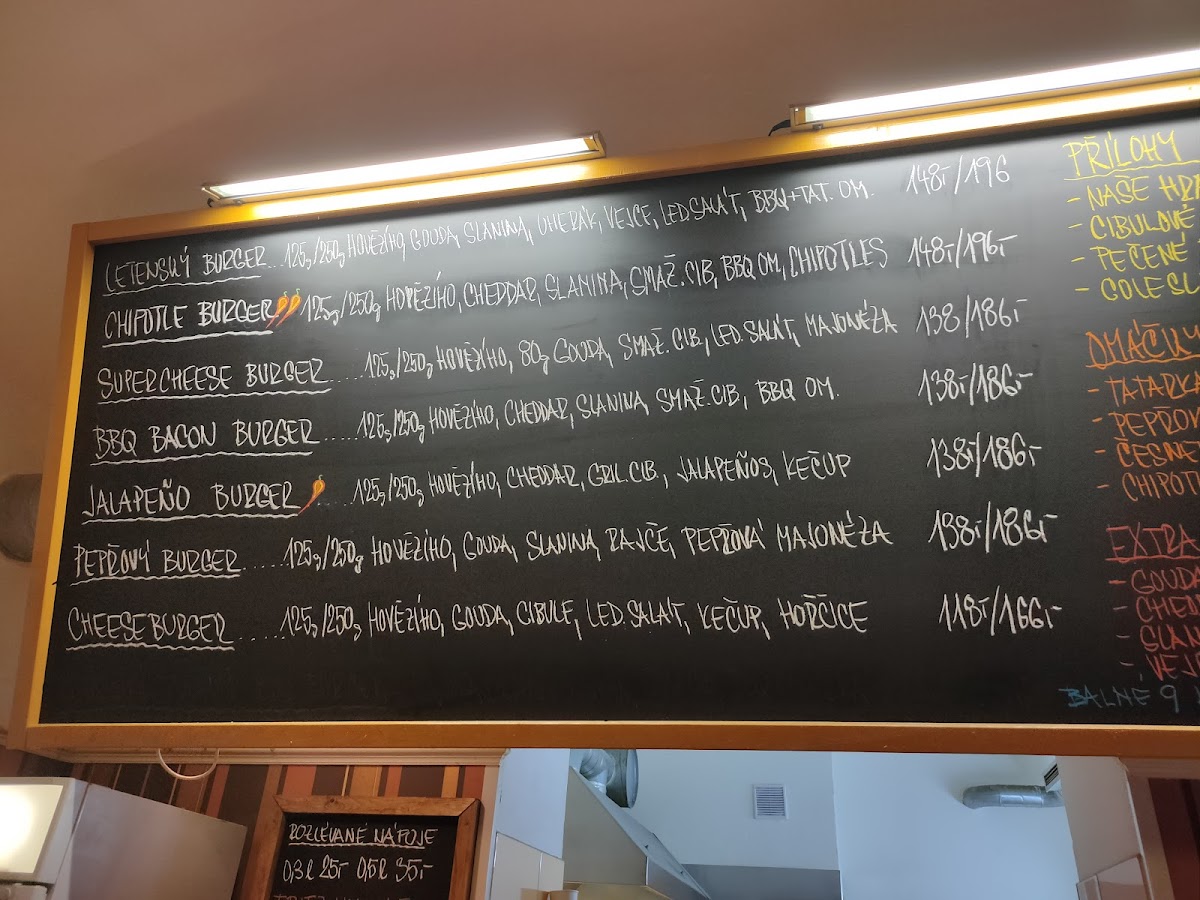 LETENSKÝ BURGER...125g/250g HOVĚZÍHO, GOUDA, SLANINA, UHERÁK, VEJCE, LED.SALÁT, BBQ+TAT. OM. 148,-/196
CHIPOTLE BURGER 125g/250g HOVĚZÍHO, CHEDDAR, SLANINA, SMAŽ.CIB, BBQ OM, CHIPOTLES 148,-/196,-
SUPERCHEESE BURGER.....125g/250g HOVĚZÍHO, 80g GOUDA, SMAŽ.CIB, LED. SALÁT, MAJONÉZA 138/186,-
BBQ BACON BURGER.....125g/250g HOVĚZÍHO, CHEDDAR, SLANINA, SMAŽ.CIB, BBQ OM. 138,-/186,-
JALAPEÑO BURGER ....125g/250g HOVĚZÍHO, CHEDDAR, GRIL.CIB., JALAPEÑOS, KEČUP 138,-/186,-
PEPŘOVÝ BURGER......125g/250g HOVĚZÍHO, GOUDA, SLANINA, RAJČE, PEPŘOVÁ MAJONÉZA 138,-/186,-
CHEESEBURGER......125g/250g HOVĚZÍHO, GOUDA, CIBULE, LED.SALÁT, KEČUP, HOŘČICE 118,-/166,-
PŘÍLOHY
- NAŠE
- CIBULOVÉ
- PEČENÉ
- COLESL
OMÁČKY
- TATARKA
- PEPŘOV
- ČESNE
- CHIPOT
EXTRA
- GOUDA
- CHED
- SLAN
- VEJ
BALNÉ 9
ROZLÉVANÉ NÁPOJE
0,3l 25,- 0,5l 35,-